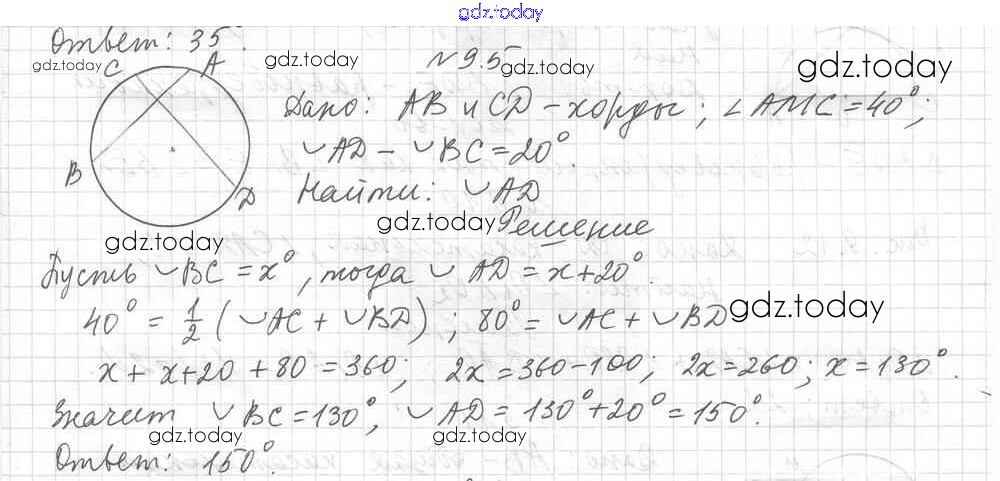 gdz.today
Ответ: 35°.
gdz.today
gdz.today
№9.5
gdz.today
gdz.today
C A B D
Дано: AB и CD – хорды; ∠AMC = 40°;
◡AD – ◡BC = 20°.
Найти: ◡AD
gdz.today
Решение
gdz.today
Пусть ◡BC = x°, тогда ◡AD = x+20°.
40° = 1/2 (◡AC + ◡BD); 80° = ◡AC + ◡BD
gdz.today
x + x+20 + 80 = 360; 2x = 360-100; 2x = 260; x = 130°.
Значит ◡BC = 130°, ◡AD = 130°+20° = 150°.
gdz.today
gdz.today
Ответ: 150°.